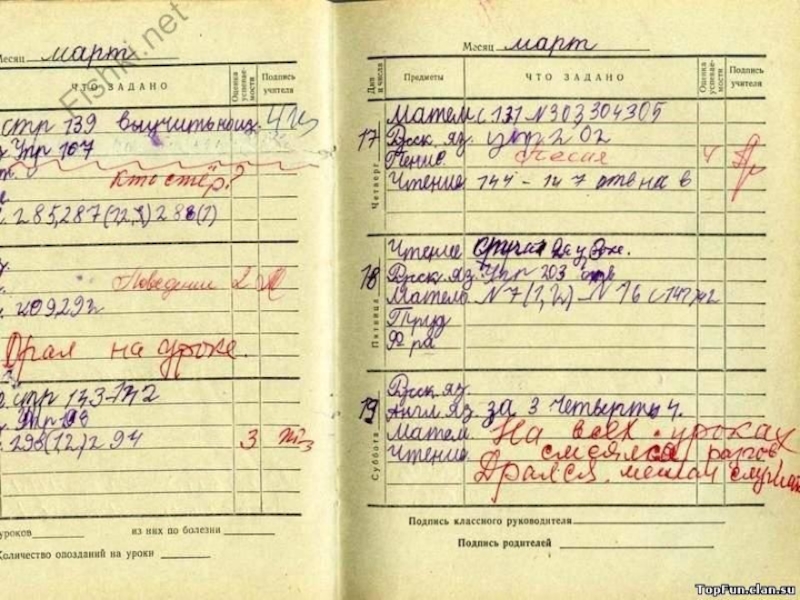 Fishki.net
Месяц март
ЧТО ЗАДАНО
Оценка успеваемости
Подпись учителя
стр 139 выучить наиз.
упр 167
Кто стёр?
285,287(12,3)288(1)
Поведение 2
209,292
Драл на уроке.
упр 133-142
упр
298(12)294 3
уроков из них по болезни
Количество опозданий на уроки
Месяц март
Дни и числа
Предметы
ЧТО ЗАДАНО
Оценка успеваемости
Подпись учителя
17
Четверг
Матем с 131 N303304305
Русск яз. упр 202
Пение. Песня 4
Чтение 144-147 отв на в
18
Пятница
Чтение
Русск. яз. Упр 203
Матем N7(1,2)-N16 с 147
Труд
Ф ра
19
Суббота
Русск яз.
Англ яз. за 3 четверть 4.
Матем. На всех уроках
Чтение смеялся, разгов
Дрался. мешал слушат
Подпись классного руководителя
Подпись родителей
TopFun.clan.su